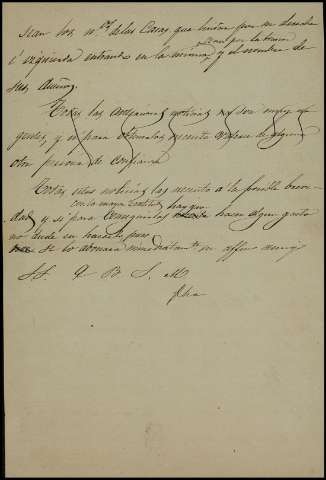 sean los n.os de las Casas que tienen por su derecha
é izquierda entrando en la misma, y el nombre de
sus dueños.
Todas las anteriores noticias no son muy
y si para obtenerlas necesita valerse de alguna
otra persona de confianza
Todas estas noticias las necesito a la posible breve-
con la mayor exactitud hay que
dad y si para conseguirlas hacer algun gasto
no dude en hacerlo, pues
se lo abonará inmediatamente su affmo amigo
S. S. Q. B. S. M.